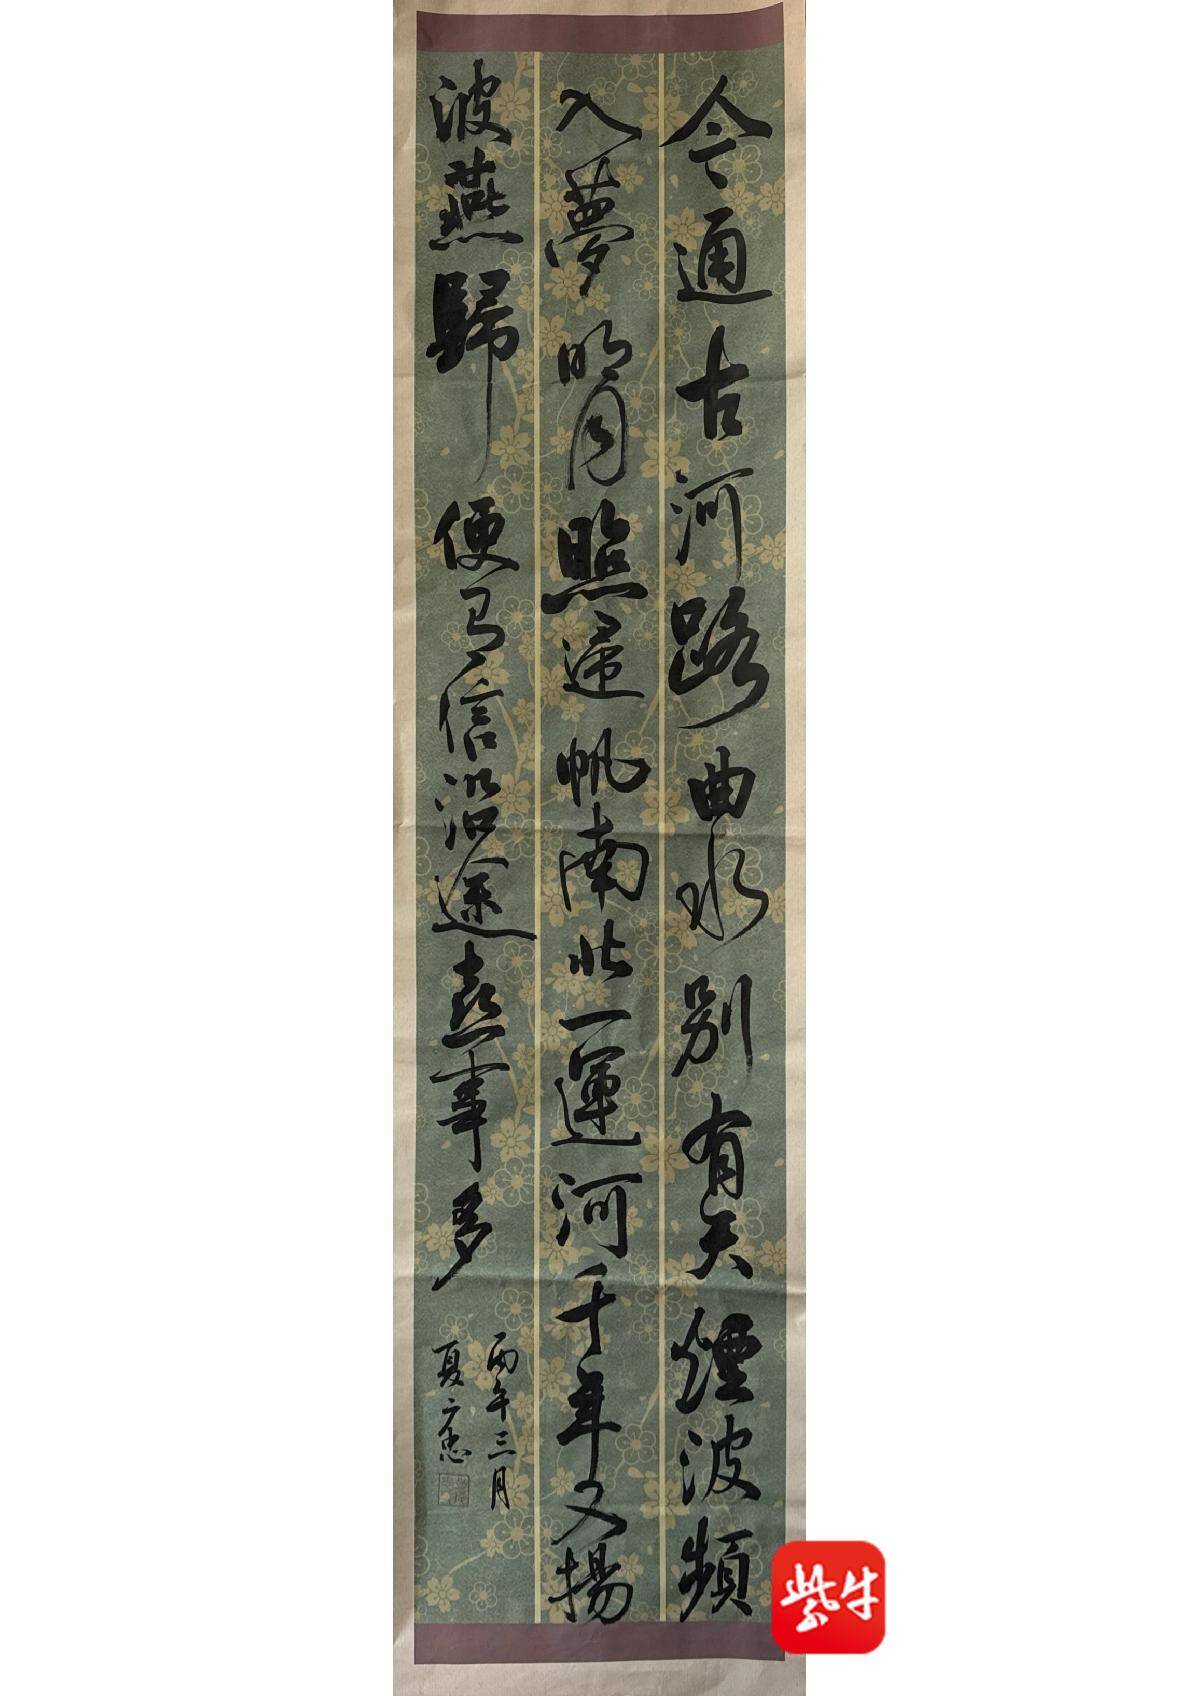 今通古河路曲水別有天煙波頻
入夢明月照歸帆南北一運河千年又揚
波燕歸便有信沿途喜事多
丙午三月
夏
紫牛